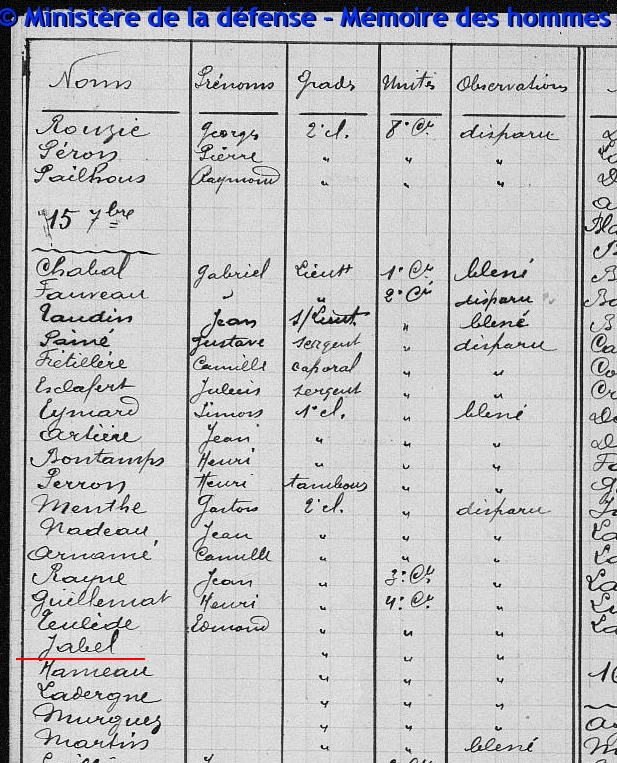 © Ministère de la défense - Mémoire des hommes
Noms Prénoms Grads Unités Observations
Rouzic Georges 2e cl. 8e Cie disparu
Péron Pierre " " "
Pailhous Raymond " " "
15 7bre
Chabal Gabriel Lieutt 1e Cie blessé
Fauveau " " 2e Cie disparu
Taudin Jean s/Lieut. " blessé
Painé Gustave sergent " disparu
Fietillère Camille caporal " "
Esclafert Juleins sergent " "
Eymard Simon 1e cl. " blessé
Artière Jean " " "
Bontamps Henri " " "
Perron Henri tambour " "
Menthe Gaston 2e cl. " disparu
Nadeau Jean " " "
Arnamé Camille " " "
Rayne Jean " 3e Cie "
Guillemat Henri " 4e Cie "
Teulède Edmond " " "
Jabel " " "
Hameau " " "
Ladergne " " "
Murguez " " "
Martin " " blessé